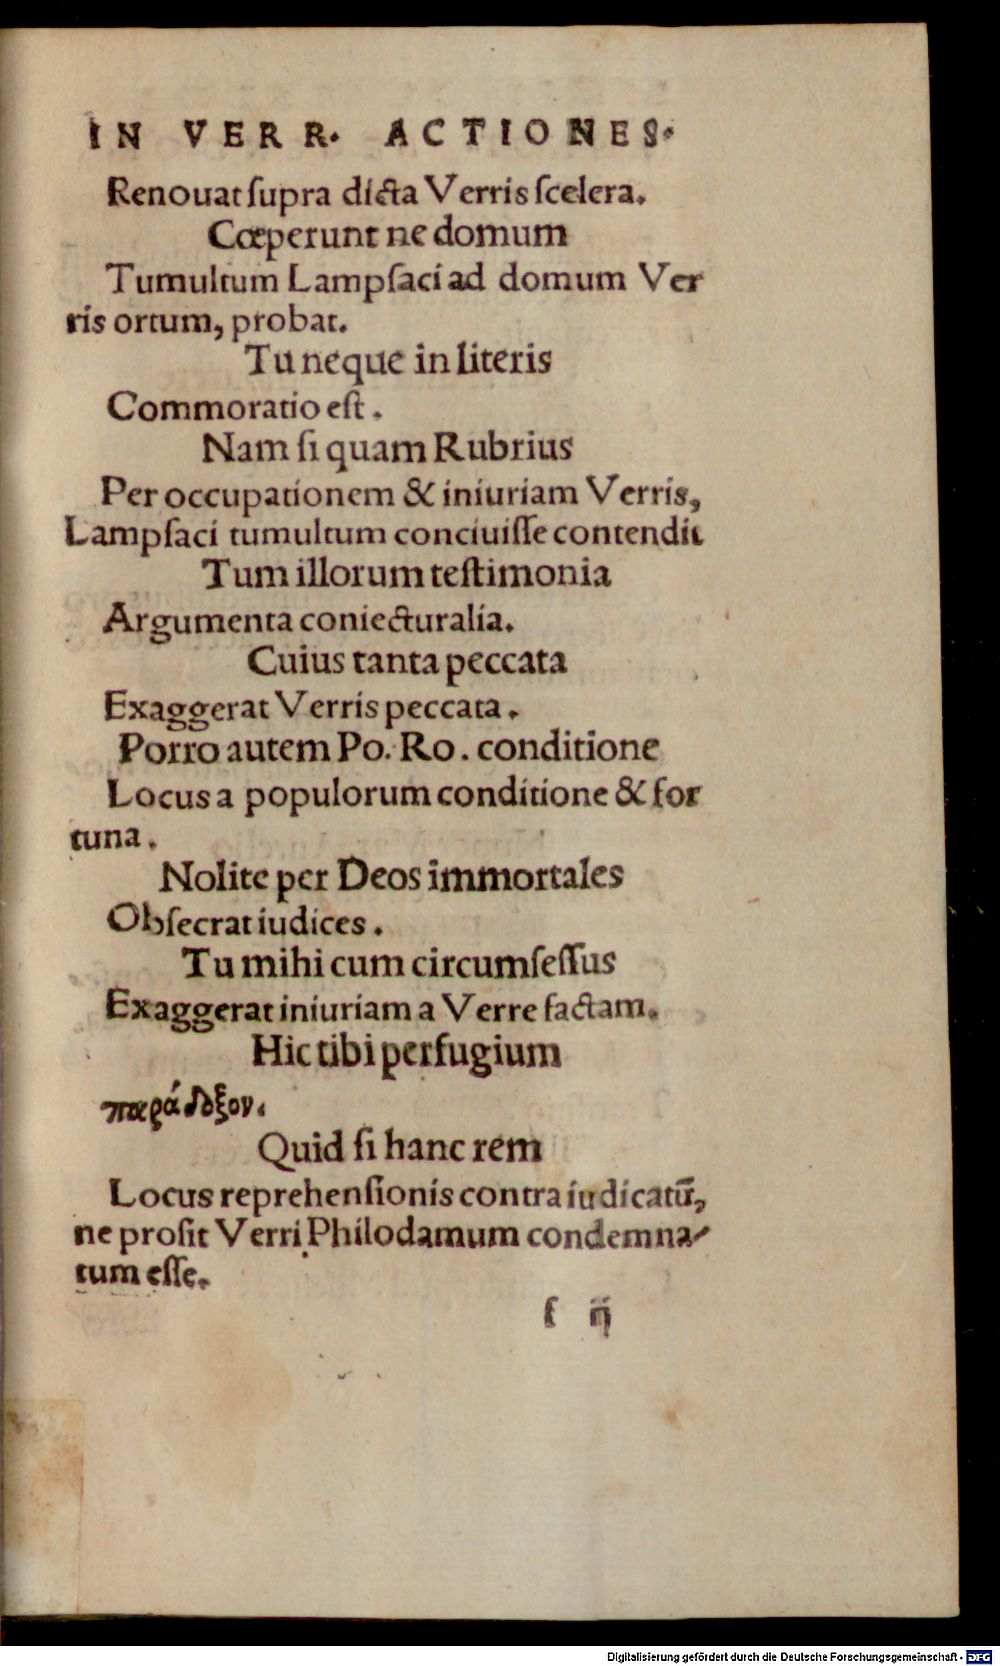 IN VERR. ACTIONES.
Renouat ſupra dicta Verris ſcelera.
Cœperunt ne domum
Tumultum Lampſaci ad domum Ver
ris ortum, probat.
Tu neque in literis
Commoratio eſt.
Nam ſi quam Rubrius
Per occupationem & iniuriam Verris,
Lampſaci tumultum conciuiſſe contendit
Tum illorum teſtimonia
Argumenta coniecturalia.
Cuius tanta peccata
Exaggerat Verris peccata.
Porro autem Po. Ro. conditione
Locus a populorum conditione & for
tuna.
Nolite per Deos immortales
Obſecrat iudices.
Tu mihi cum circumſeſſus
Exaggerat iniuriam a Verre factam.
Hic tibi perfugium
παράδοξον.
Quid ſi hanc rem
Locus reprehenſionis contra iudicatū,
ne proſit Verri Philodamum condemna-
tum eſſe.
ſ ij
Digitalisierung gefördert durch die Deutsche Forschungsgemeinschaft - DFG